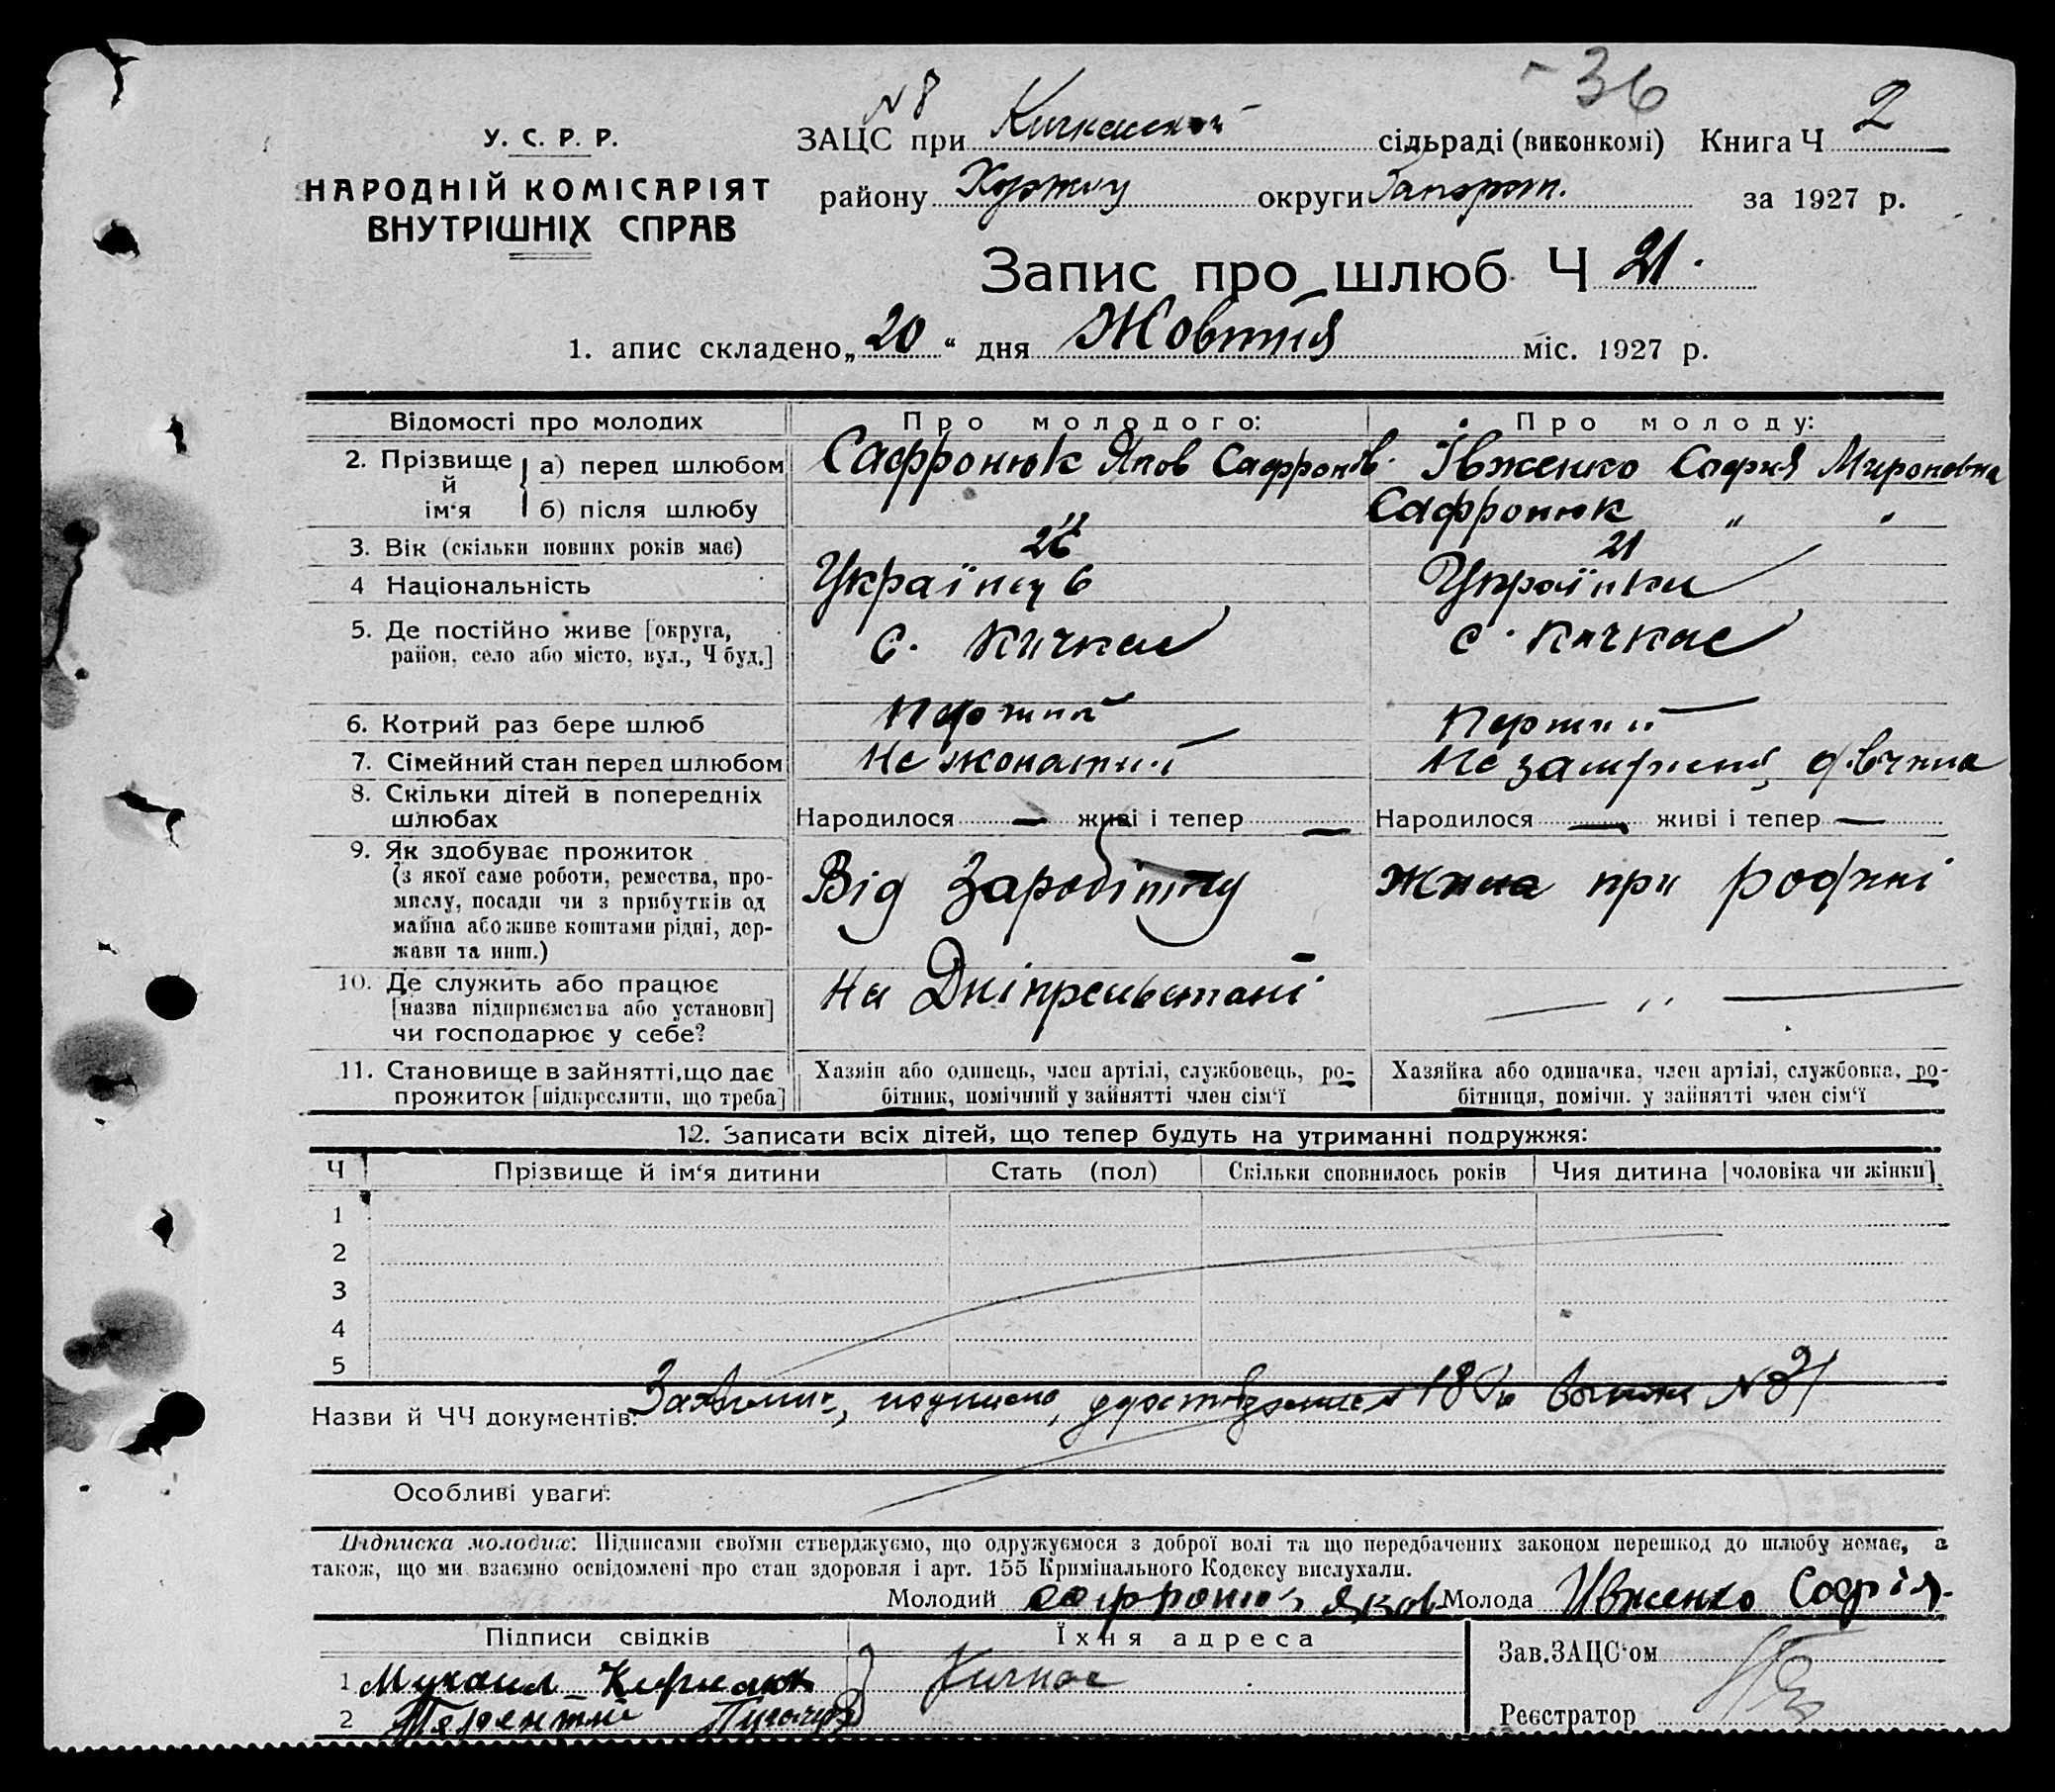 -36
N 8
У. С. Р. Р.
ЗАЦС при Кичкаській сільраді (виконкомі) Книга Ч 2
НАРОДНІЙ КОМІСАРІЯТ
ВНУТРІШНІХ СПРАВ
району Хортиц округи Запорож. за 1927 р.
Запис про шлюб Ч 21.
1. апис складено „20“ дня Жовтня міс. 1927 р.
Відомості про молодих Про молодого: Про молоду:
2. Прізвище й ім'я а) перед шлюбом Сафронюк Яков Сафронов. Івженко София Мироновна
б) після шлюбу " Сафронюк " "
3. Вік (скільки повних років має) 26 21
4 Національність Українець Українка
5. Де постійно живе [округа, район, село або місто, вул., Ч буд.] с. Кичкас с. Кичкас
6. Котрий раз бере шлюб Перший Перший
7. Сімейний стан перед шлюбом Не жонатий Не замужня дівчина
8. Скільки дітей в попередніх шлюбах Народилося — живі і тепер — Народилося — живі і тепер —
9. Як здобуває прожиток
(з якої саме роботи, ремества, про-
мислу, посади чи з прибутків од
майна або живе коштами рідні, дер-
жави та инш.)
Від Заробітку
при родині
10. Де служить або працює
[назва підприємства або установи]
чи господарює у себе?
На
— " —
11. Становище в зайнятті, що дає
прожиток [підкреслити, що треба]
Хазяін або одинець, член артілі, службовець, ро-
бітник, помічний у зайнятті член сім'ї
Хазяйка або одиначка, член артілі, службовка, ро-
бітниця, помічн. у зайнятті член сім'ї
12. Записати всіх дітей, що тепер будуть на утриманні подружжя:
Ч Прізвище й ім'я дитини Стать (пол) Скільки сповнилось років Чия дитина [чоловіка чи жінки]
1
2
3
4
5
Назви й ЧЧ документів: N 21
Особливі уваги:
Підписка молодих: Підписами своїми стверджуємо, що одружуємося з доброї волі та що передбачених законом перешкод до шлюбу немає, а
також, що ми взаємно освідомлені про стан здоровля і арт. 155 Кримінального Кодексу вислухали.
Молодий Сафронюк Яков Молода Ивженко Софія.
Підписи свідків Їхня адреса
Зав. ЗАЦС'ом
1 Кичкас
2
Реєстратор